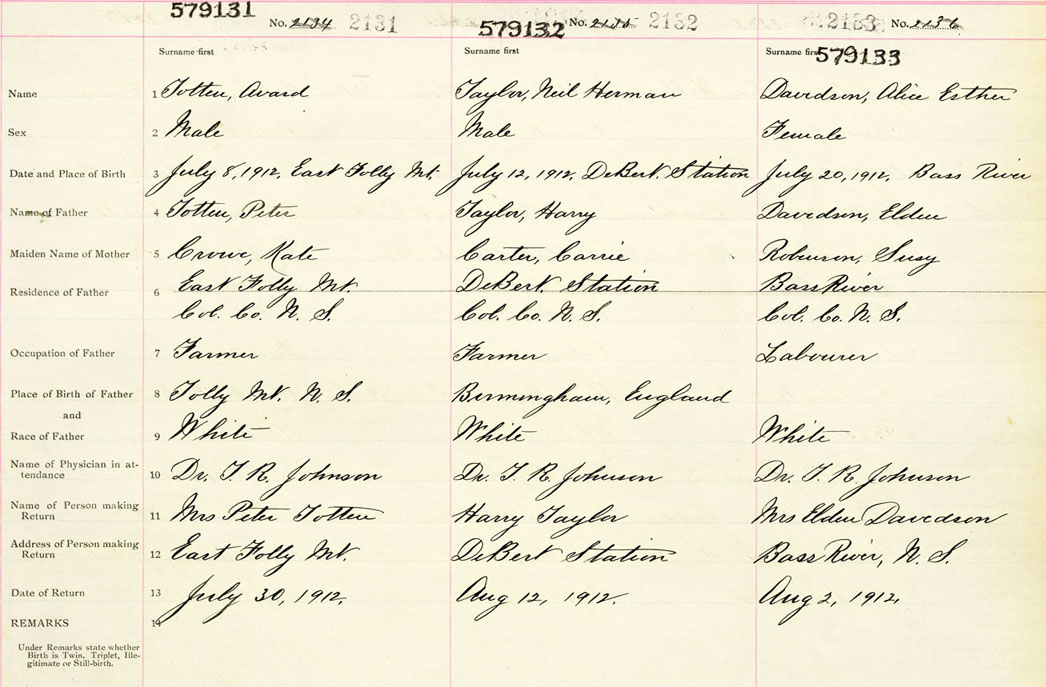 579131 No. 2134 2131 579132 No. 2135 2132 2133 No. 2136
Surname first Surname first Surname first 579133
Name 1 Totten, Avard Taylor, Neil Herman Davidson, Alice Esther
Sex 2 Male Male Female
Date and Place of Birth 3 July 8, 1912, East Folly Mt. July 12, 1912, DeBert Station July 20, 1912, Bass River
Name of Father 4 Totten, Peter Taylor, Harry Davidson, Elden
Maiden Name of Mother 5 Crowe, Kate Carter, Carrie Robinson, Susy
Residence of Father 6 East Folly Mt. DeBert Station Bass River
Col. Co. N. S. Col. Co. N. S. Col. Co. N. S.
Occupation of Father 7 Farmer Farmer Labourer
Place of Birth of Father 8 Folly Mt. N. S. Birmingham, England
and
Race of Father 9 White White White
Name of Physician in at-
tendance 10 Dr. T. R. Johnson Dr. T. R. Johnson Dr. T. R. Johnson
Name of Person making
Return 11 Mrs Peter Totten Harry Taylor Mrs Elden Davidson
Address of Person making
Return 12 East Folly Mt. DeBert Station Bass River, N. S.
Date of Return 13 July 30, 1912. Aug 12, 1912. Aug 2, 1912,
REMARKS 14
Under Remarks state whether
Birth is Twin, Triplet, Ille-
gitimate or Still-birth.